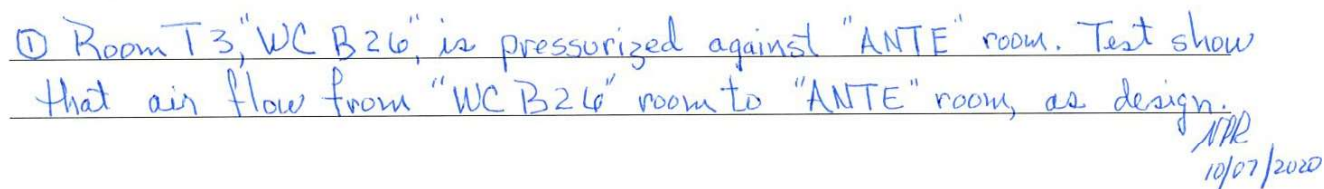 ① Room T3, "WC B26", is pressurized against "ANTE" room. Test show
that air flow from "WC B26" room to "ANTE" room, as design.
NPR
10/07/2020